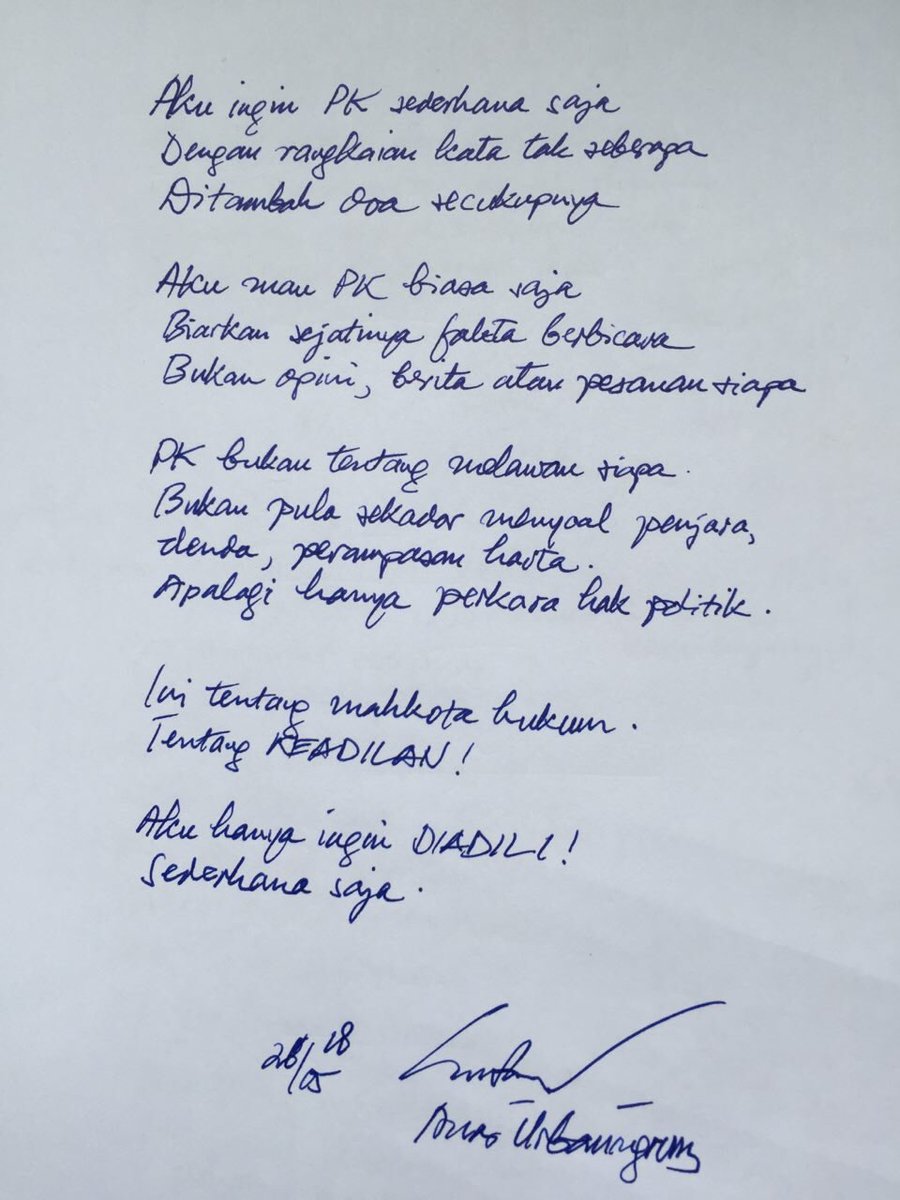 Aku ingin PK sederhana saja
Dengan rangkaian kata tak seberapa
Ditambah doa secukupnya
Aku mau PK biasa saja
Biarkan sejatinya fakta berbicara
Bukan opini, berita atau pesanan siapa
PK bukan tentang melawan siapa.
Bukan pula sekadar menyoal penjara,
denda, perampasan harta.
Apalagi hanya perkara hak politik.
Ini tentang mahkota hukum.
Tentang KEADILAN!
Aku hanya ingin DIADILI!
Sederhana saja.
18
/05
Anas Urbaningrum